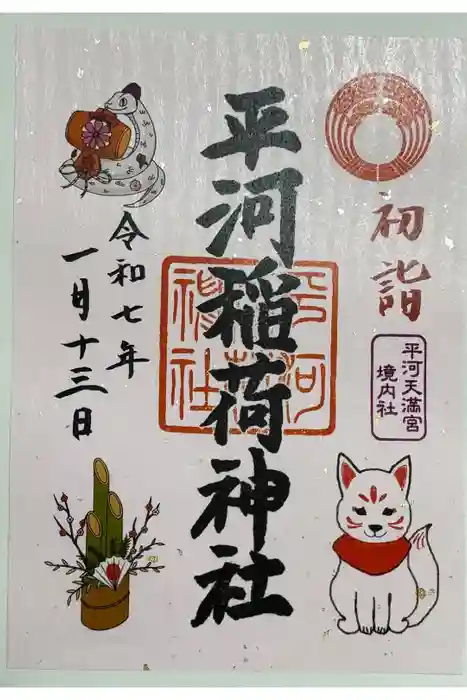 初詣
平河天満宮
境内社
平河稲荷神社
令和七年
一月十三日